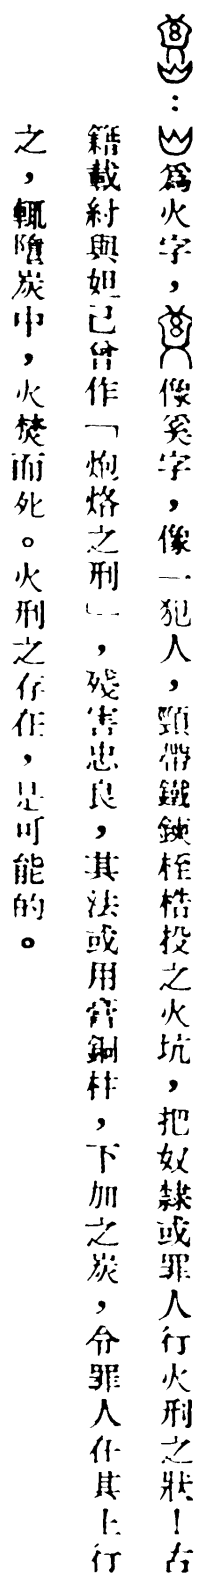 ：為火字，像奚字，像一犯人，頸帶鐵鍊桎梏投之火坑，把奴隸或罪人行火刑之狀！古
籍載紂與妲己曾作「炮烙之刑」，殘害忠良，其法或用膏銅柱，下加之炭，令罪人在其上行
之，輒墮炭中，火焚而死。火刑之存在，是可能的。